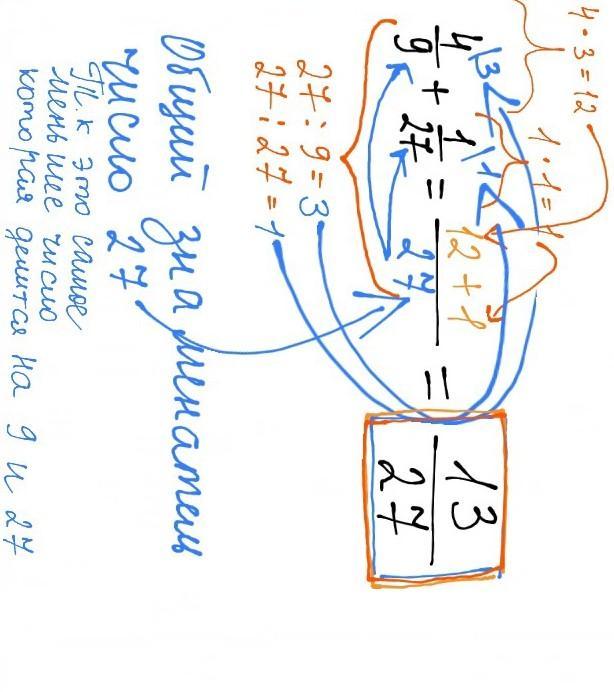 4 · 3 = 12
1 · 1 = 1
4/9 \3 + 1/27 \1 = 12 + 1/27 = 13/27
27 : 9 = 3
27 : 27 = 1
Общий знаменатель
число 27
Т.к это самое
меньшее число
которая делится на 9 и 27